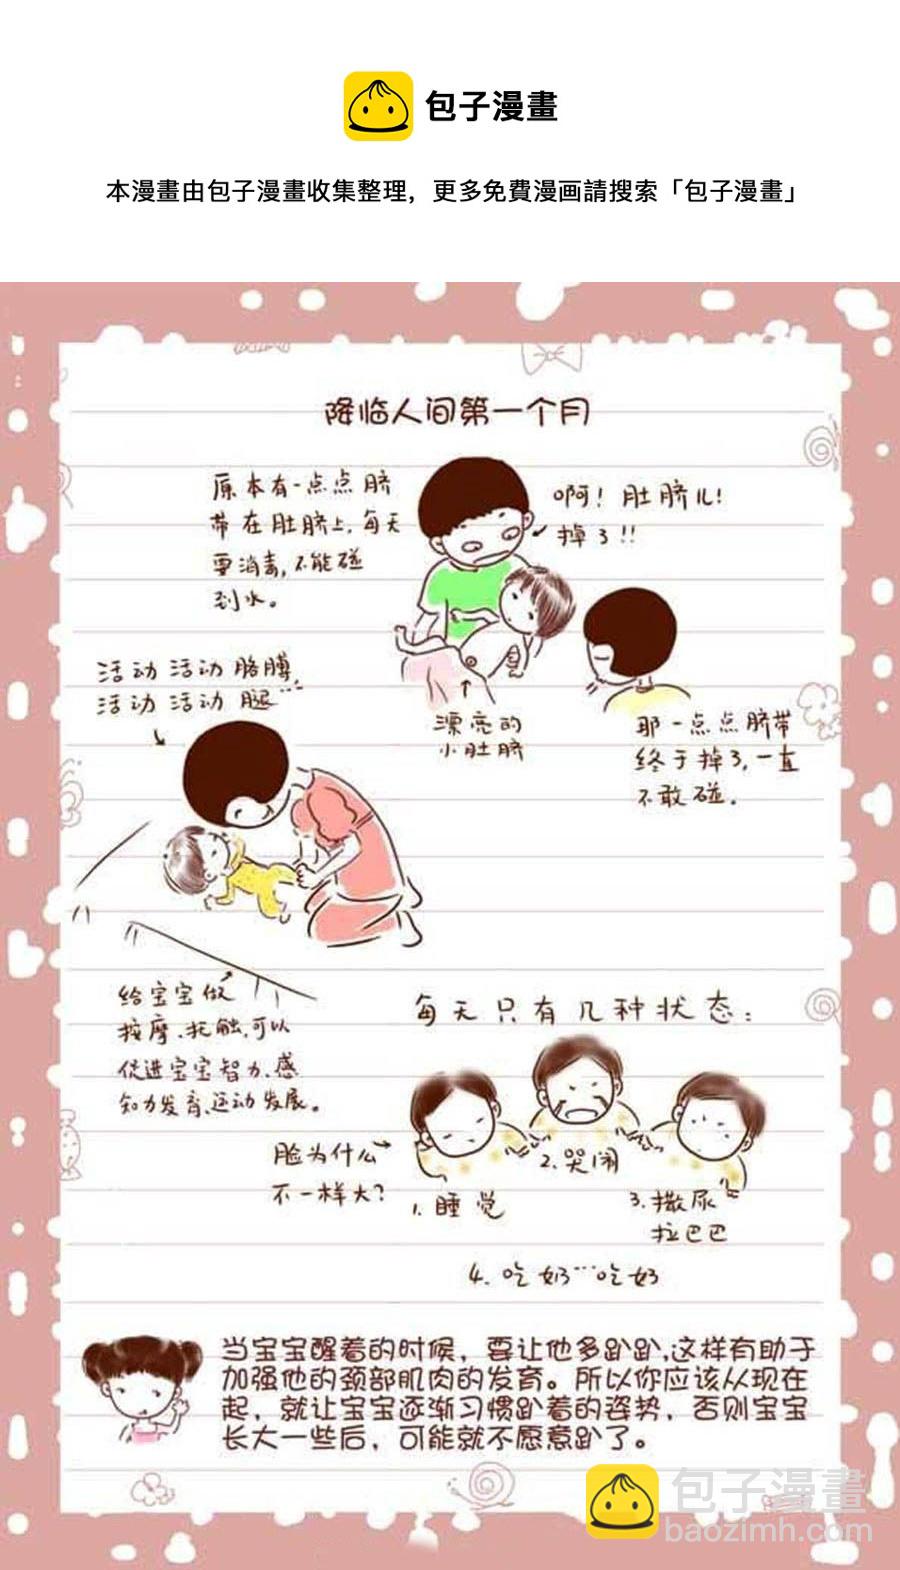 包子漫畫
本漫畫由包子漫畫收集整理，更多免費漫画請搜索「包子漫畫」
降临人间第一个月
原本有一点点脐
带在肚脐上，每天
要消毒，不能碰
到水。
啊！肚脐儿！
掉了!!
漂亮的
小肚脐
那一点点脐带
终于掉了，一直
不敢碰。
活动活动胳膊，
活动活动腿…
给宝宝做
按摩、抚触，可以
促进宝宝智力、感
知力发育、运动发展。
每天只有几种状态：
脸为什么
不一样大？
1.睡觉
2.哭闹
3.撒尿
拉巴巴
4.吃奶…吃奶
当宝宝醒着的时候，要让他多趴趴，这样有助于
加强他的颈部肌肉的发育。所以你应该从现在
起，就让宝宝逐渐习惯趴着的姿势，否则宝宝
长大一些后，可能就不愿意趴了。
包子漫畫
baozimh.com